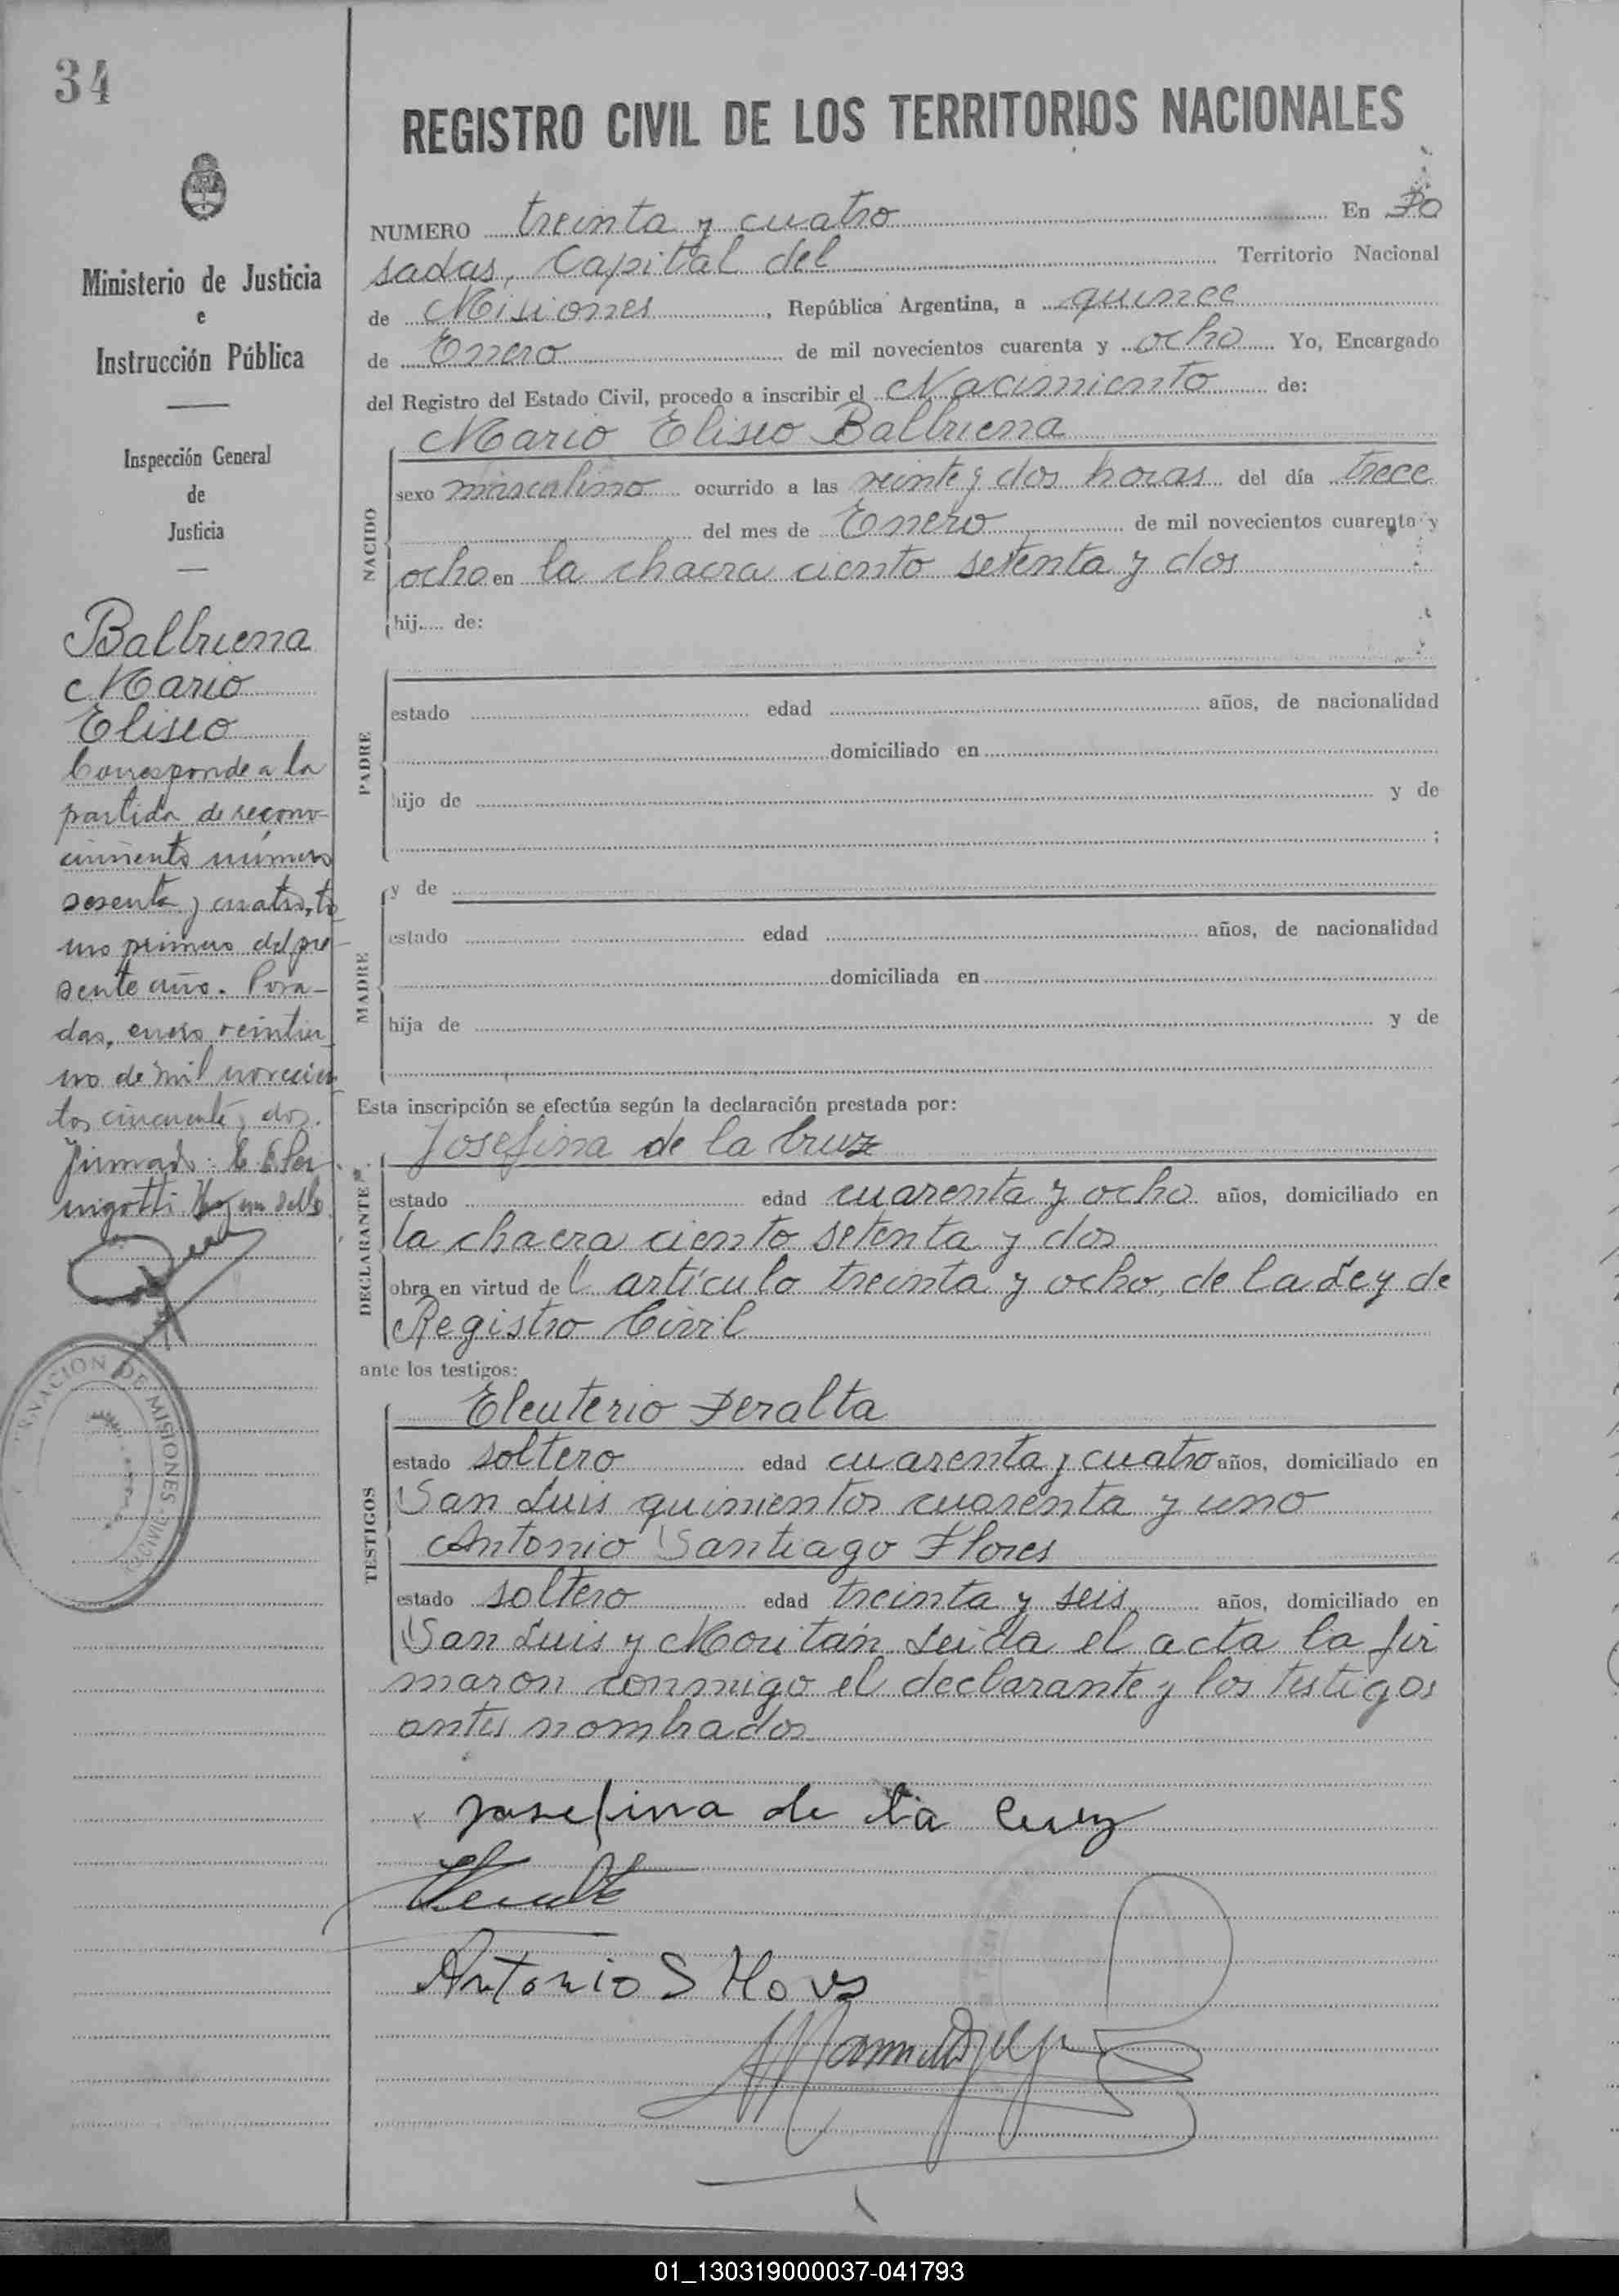 34
Ministerio de Justicia
e
Instrucción Pública
Inspección General
de
Justicia
Balbuena
Mario
Eliseo
Corresponde a la
partida de recono-
cimiento número
sesenta y cuatro, to
mo primero del pre-
sente año. Posa-
das, enero veintiu
no de mil novecien
tos cincuenta y dos.
Firmado: E. E.
Hay un sello
REGISTRO CIVIL DE LOS TERRITORIOS NACIONALES
NUMERO treinta y cuatro En Po
sadas, Capital del Territorio Nacional
de Misiones, República Argentina, a quince
de Enero de mil novecientos cuarenta y ocho Yo, Encargado
del Registro del Estado Civil, procedo a inscribir el Nacimiento de:
NACIDO
Mario Eliseo Balbuena
sexo masculino ocurrido a las veinte y dos horas del día trece
del mes de Enero de mil novecientos cuarenta y
ocho en la chacra ciento setenta y dos
hij.... de:
PADRE
estado edad años, de nacionalidad
domiciliado en
hijo de y de
;
MADRE
y de
estado edad años, de nacionalidad
domiciliada en
hija de y de
Esta inscripción se efectúa según la declaración prestada por:
DECLARANTE
Josefina de la Cruz
estado edad cuarenta y ocho años, domiciliado en
la chacra ciento setenta y dos
obra en virtud del artículo treinta y ocho, de la Ley de
Registro Civil
ante los testigos:
TESTIGOS
Eleuterio Peralta
estado soltero edad cuarenta y cuatro años, domiciliado en
San Luis quinientos cuarenta y uno
Antonio Santiago Flores
estado soltero edad treinta y seis años, domiciliado en
San Luis y Moritán. Leida el acta la fir
maron conmigo el declarante y los testigos
antes nombrados
Josefina de la Cruz
Antonio S Flores
MISIONES
01_130319000037-041793